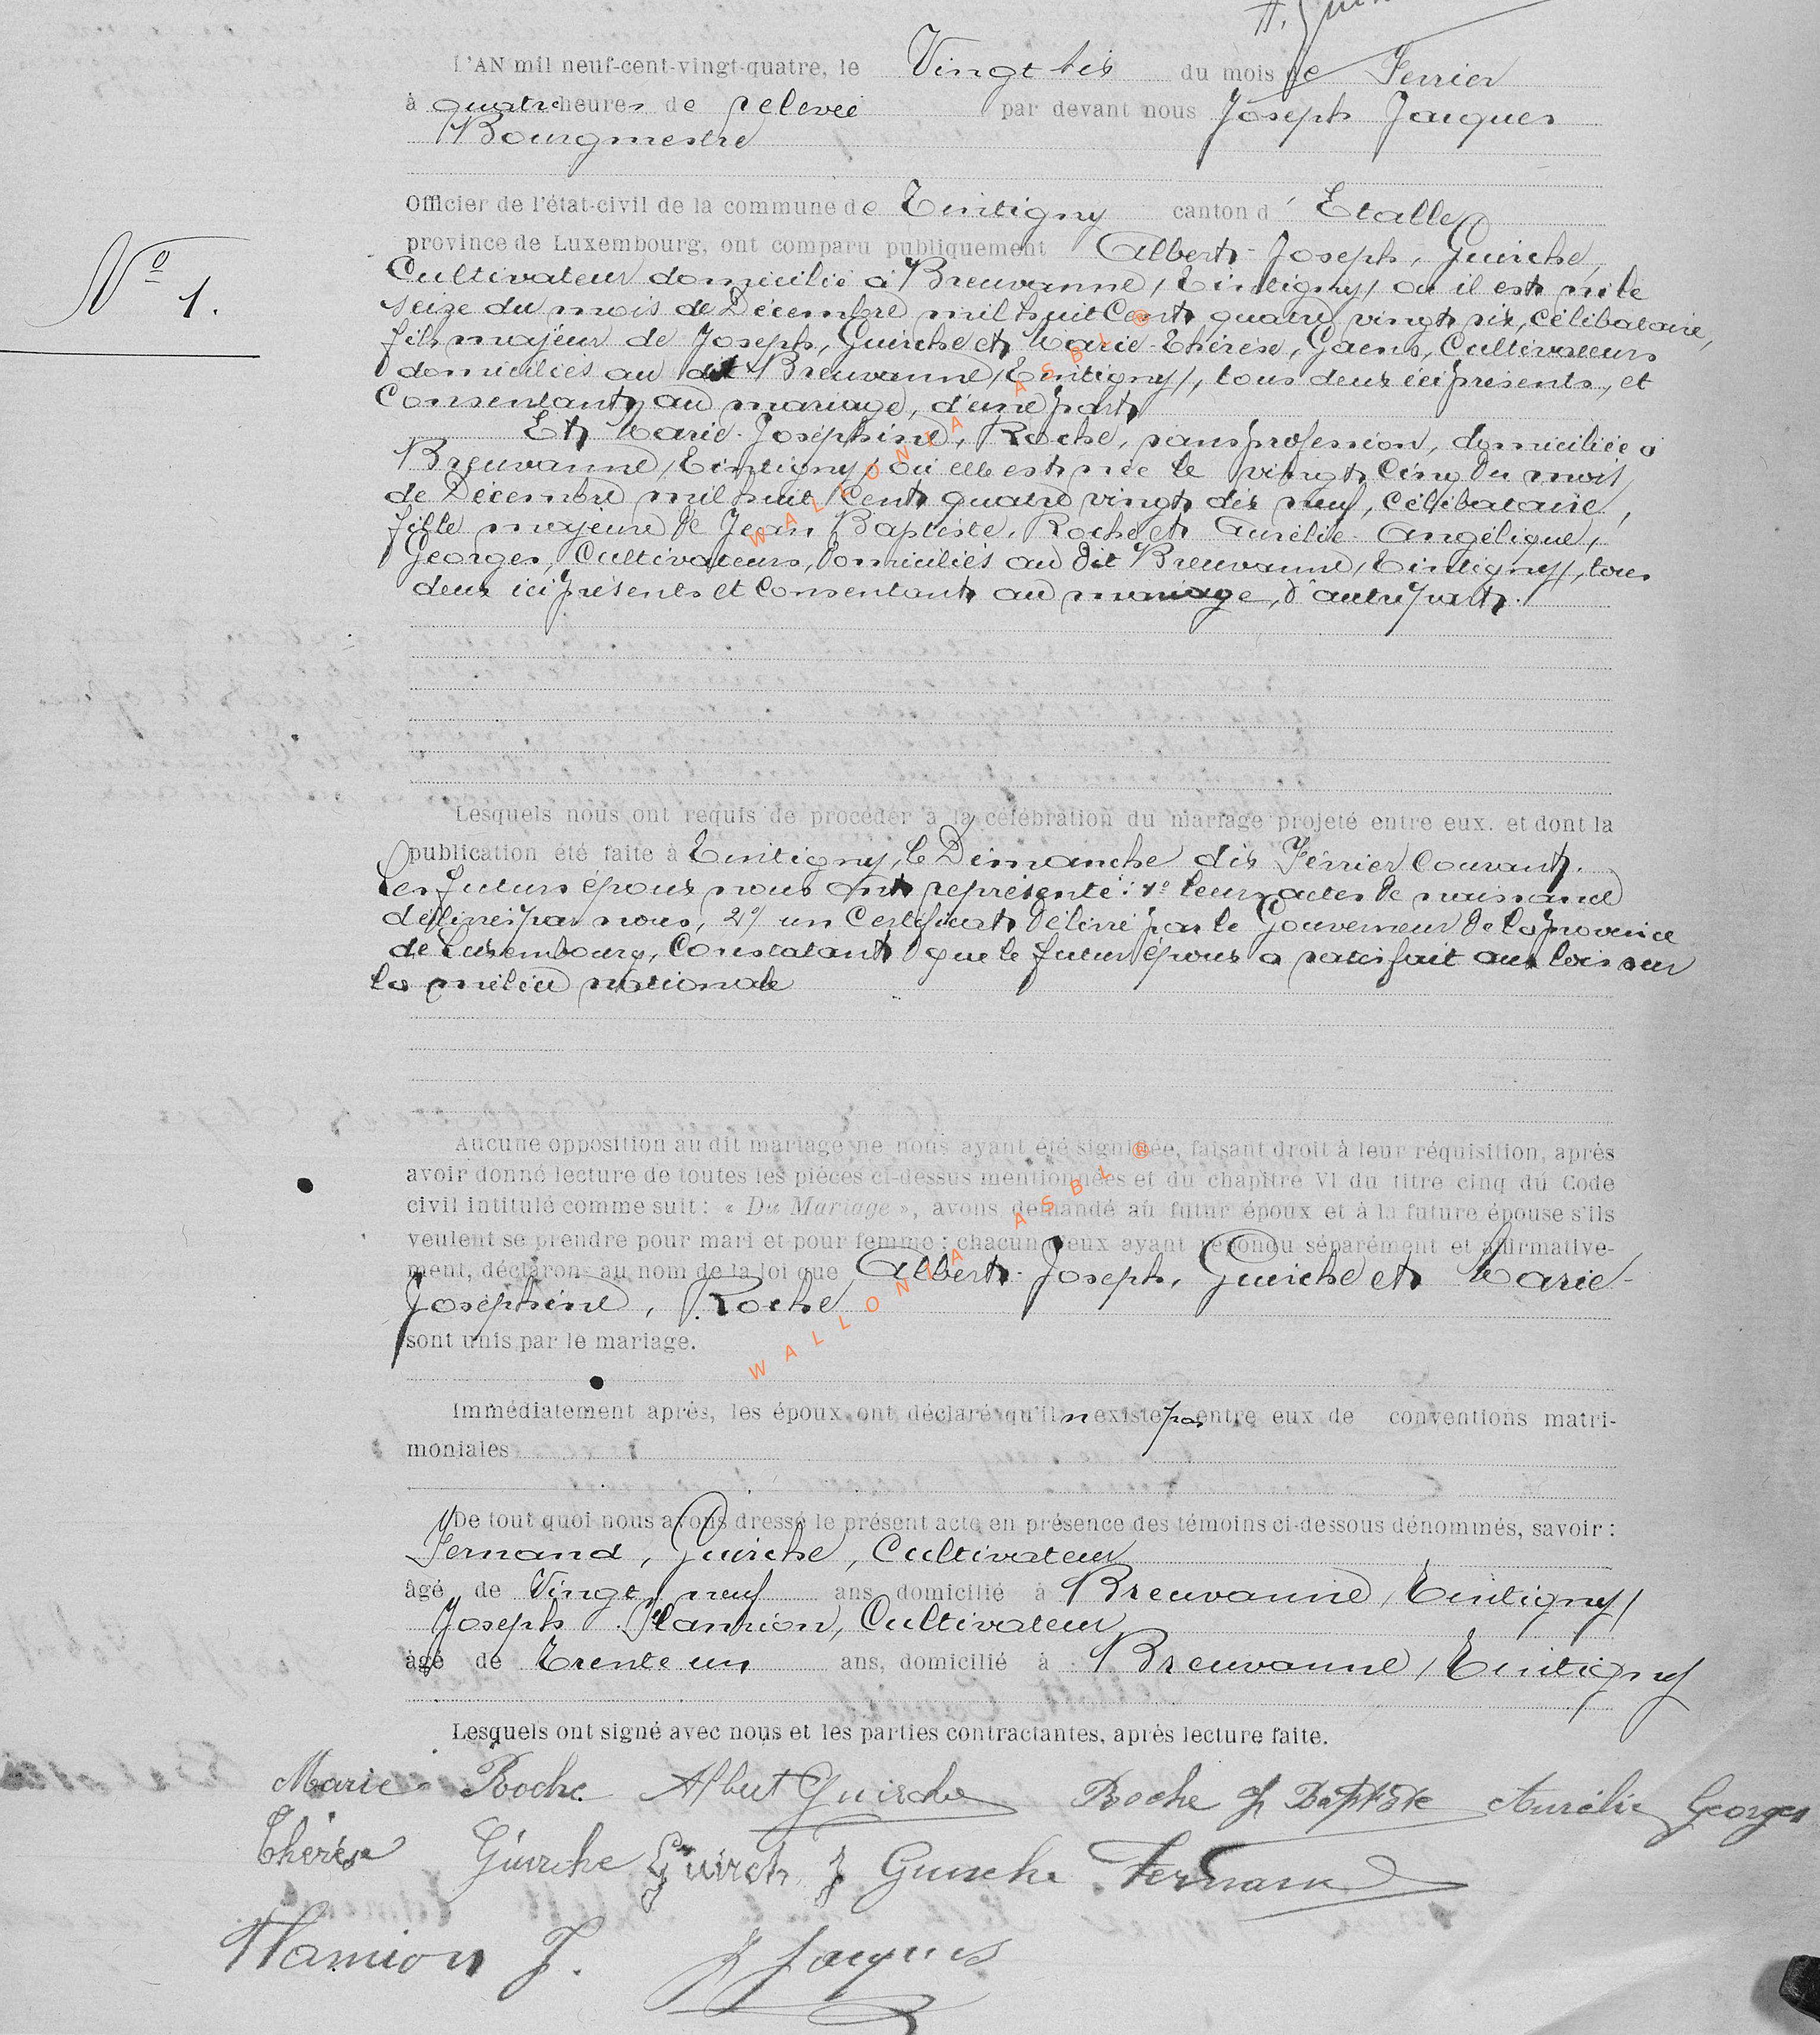 L'AN mil neuf-cent-vingt-quatre, le Vingt six du mois de Fevrier
à quatre heures de relevée par devant nous Joseph Jacques
Bourgmestre
Officier de l'état-civil de la commune de Tintigny canton d' Etalle
province de Luxembourg, ont comparu publiquement Albert-Joseph, Guirche,
N° 1.
Cultivateur domicilié à Breuvanne, (Tintigny) où il est né le
seize du mois de Décembre mil huit Cent quatre vingt six, célibataire,
fils majeur de Joseph, Guirche et Marie-Thérèse, Goens, Cultivateurs
domiciliés au dit Breuvanne, (Tintigny), tous deux ici présents, et
Consentant au mariage, d'une part
Et Marie-Joséphine, Roche, sans profession, domiciliée à
Breuvanne, (Tintigny) où elle est née le vingt cinq du mois
de Décembre mil huit Cent quatre vingt dix neuf, célibataire,
fille majeure de Jean Baptiste, Roche et Aurélie-Angélique,
Georges, Cultivateurs, domiciliés au dit Breuvanne, (Tintigny), tous
deux ici présents et Consentant au mariage, d'autre part.
Lesquels nous ont requis de procéder à la célébration du mariage projeté entre eux. et dont la
publication été faite à Tintigny, le Dimanche dix Février Courant.
Les futurs époux nous ont représenté: 1° leurs actes de naissance
délivrés par nous, 2° un Certificat délivré par le Gouverneur de la province
de Luxembourg, Constatant que le futur époux a satisfait aux lois sur
la milice nationale
Aucune opposition au dit mariage ne nous ayant été signifiée, faisant droit à leur réquisition, après
avoir donné lecture de toutes les pièces ci-dessus mentionnées et du chapître VI du titre cinq du Code
civil intitulé comme suit: « Du Mariage », avons demandé au futur époux et à la future épouse s'ils
veulent se prendre pour mari et pour femme; chacun d'eux ayant répondu séparément et affirmative-
ment, déclarons au nom de la loi que Albert-Joseph, Guirche et Marie-
Joséphine, Roche
sont unis par le mariage.
Immédiatement après, les époux ont déclaré qu'il n'existe pas entre eux de conventions matri-
moniales
De tout quoi nous avons dressé le présent acte en présence des témoins ci-dessous dénommés, savoir:
Fernand, Guirche, Cultivateur
âgé de Vingt neuf ans domicilié à Breuvanne, Tintigny)
Joseph Hannion, Cultivateur
âgé de Trente un ans, domicilié à Breuvanne, Tintigny
Lesquels ont signé avec nous et les parties contractantes, après lecture faite.
Marie Roche Albert Guirche Roche J Baptiste Aurélie Georges
Thérèse Guirche Guirch J Guirche Fernand
Hamion J. J Jacques
WALLONIA ASBL ®
WALLONIA ASBL ®